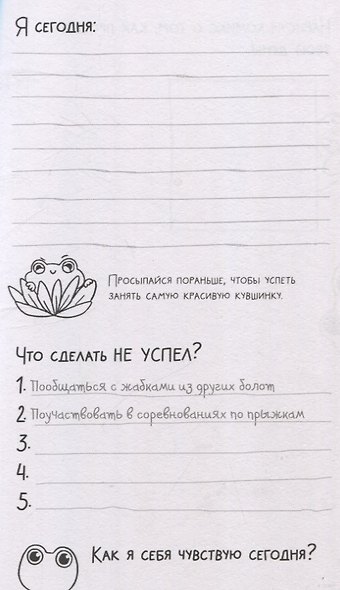 Я СЕГОДНЯ:
ПРОСЫПАЙСЯ ПОРАНЬШЕ, ЧТОБЫ УСПЕТЬ
ЗАНЯТЬ САМУЮ КРАСИВУЮ КУВШИНКУ.
ЧТО СДЕЛАТЬ НЕ УСПЕЛ?
1. Пообщаться с жабками из других болот
2. Поучаствовать в соревнованиях по прыжкам
3.
4.
5.
КАК Я СЕБЯ ЧУВСТВУЮ СЕГОДНЯ?